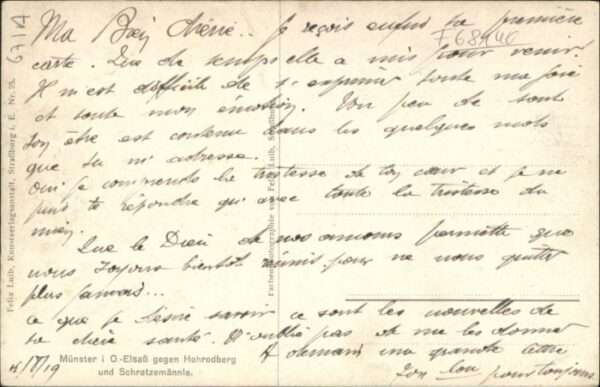 Ma chérie.. Je reçois enfin ta première
carte. Que de temps elle a mis pour venir.
Il m'est difficile de t'exprimer toute ma joie
et toute mon émotion. Un peu de tout
ton être est contenu dans les quelques mots
que tu m'adresse.
Oui je comprends la tristesse de ton cœur et je ne
puis te répondre qu'avec toute la tristesse du
mien.
Que le Dieu de nos amours permette que
nous soyons bientôt réunis pour ne nous quitter
plus jamais...
Ce que je désire savoir ce sont les nouvelles de
ta chère santé. N'oublie pas de me les donner
demain une grande lettre
Ton pour toujours
67/14
F 68
Felix Luib, Kunstverlagsanstalt, Straßburg i. E. Nr. 25.
Farbenphotographie von Felix Luib, Straßburg
Münster i O.-Elsaß gegen Hohrodberg
und Schratzemännle.